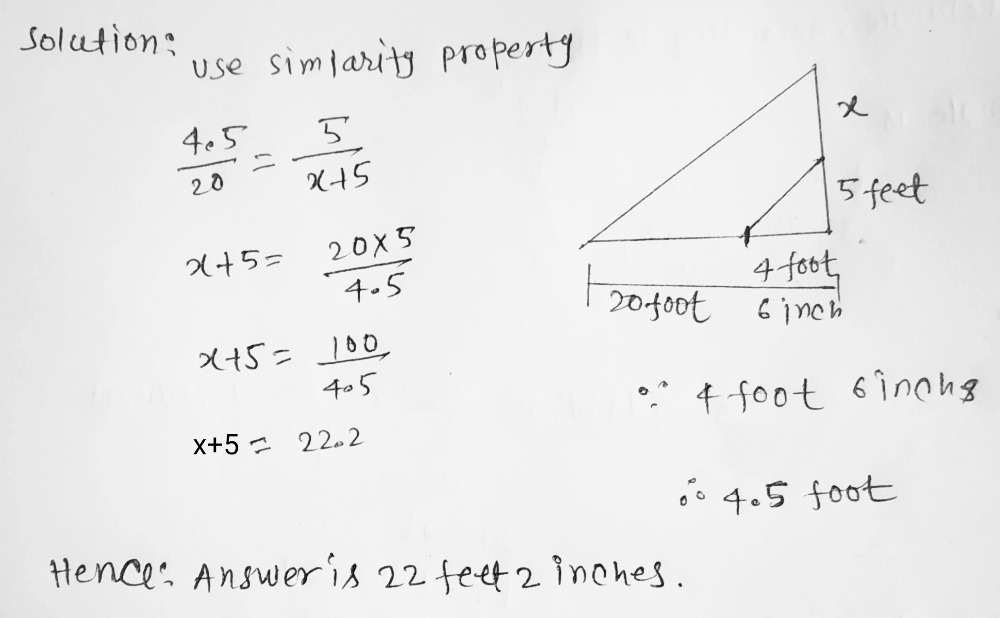 Solution:
use simlarity property
4.5/20 = 5/x+5
x+5 = 20×5/4.5
x+5 = 100/4.5
x+5 = 22.2
x
5 feet
4 foot
20 foot 6 inch
∵ 4 foot 6 inchs
∴ 4.5 foot
Hence: Answer is 22 feet 2 inches.